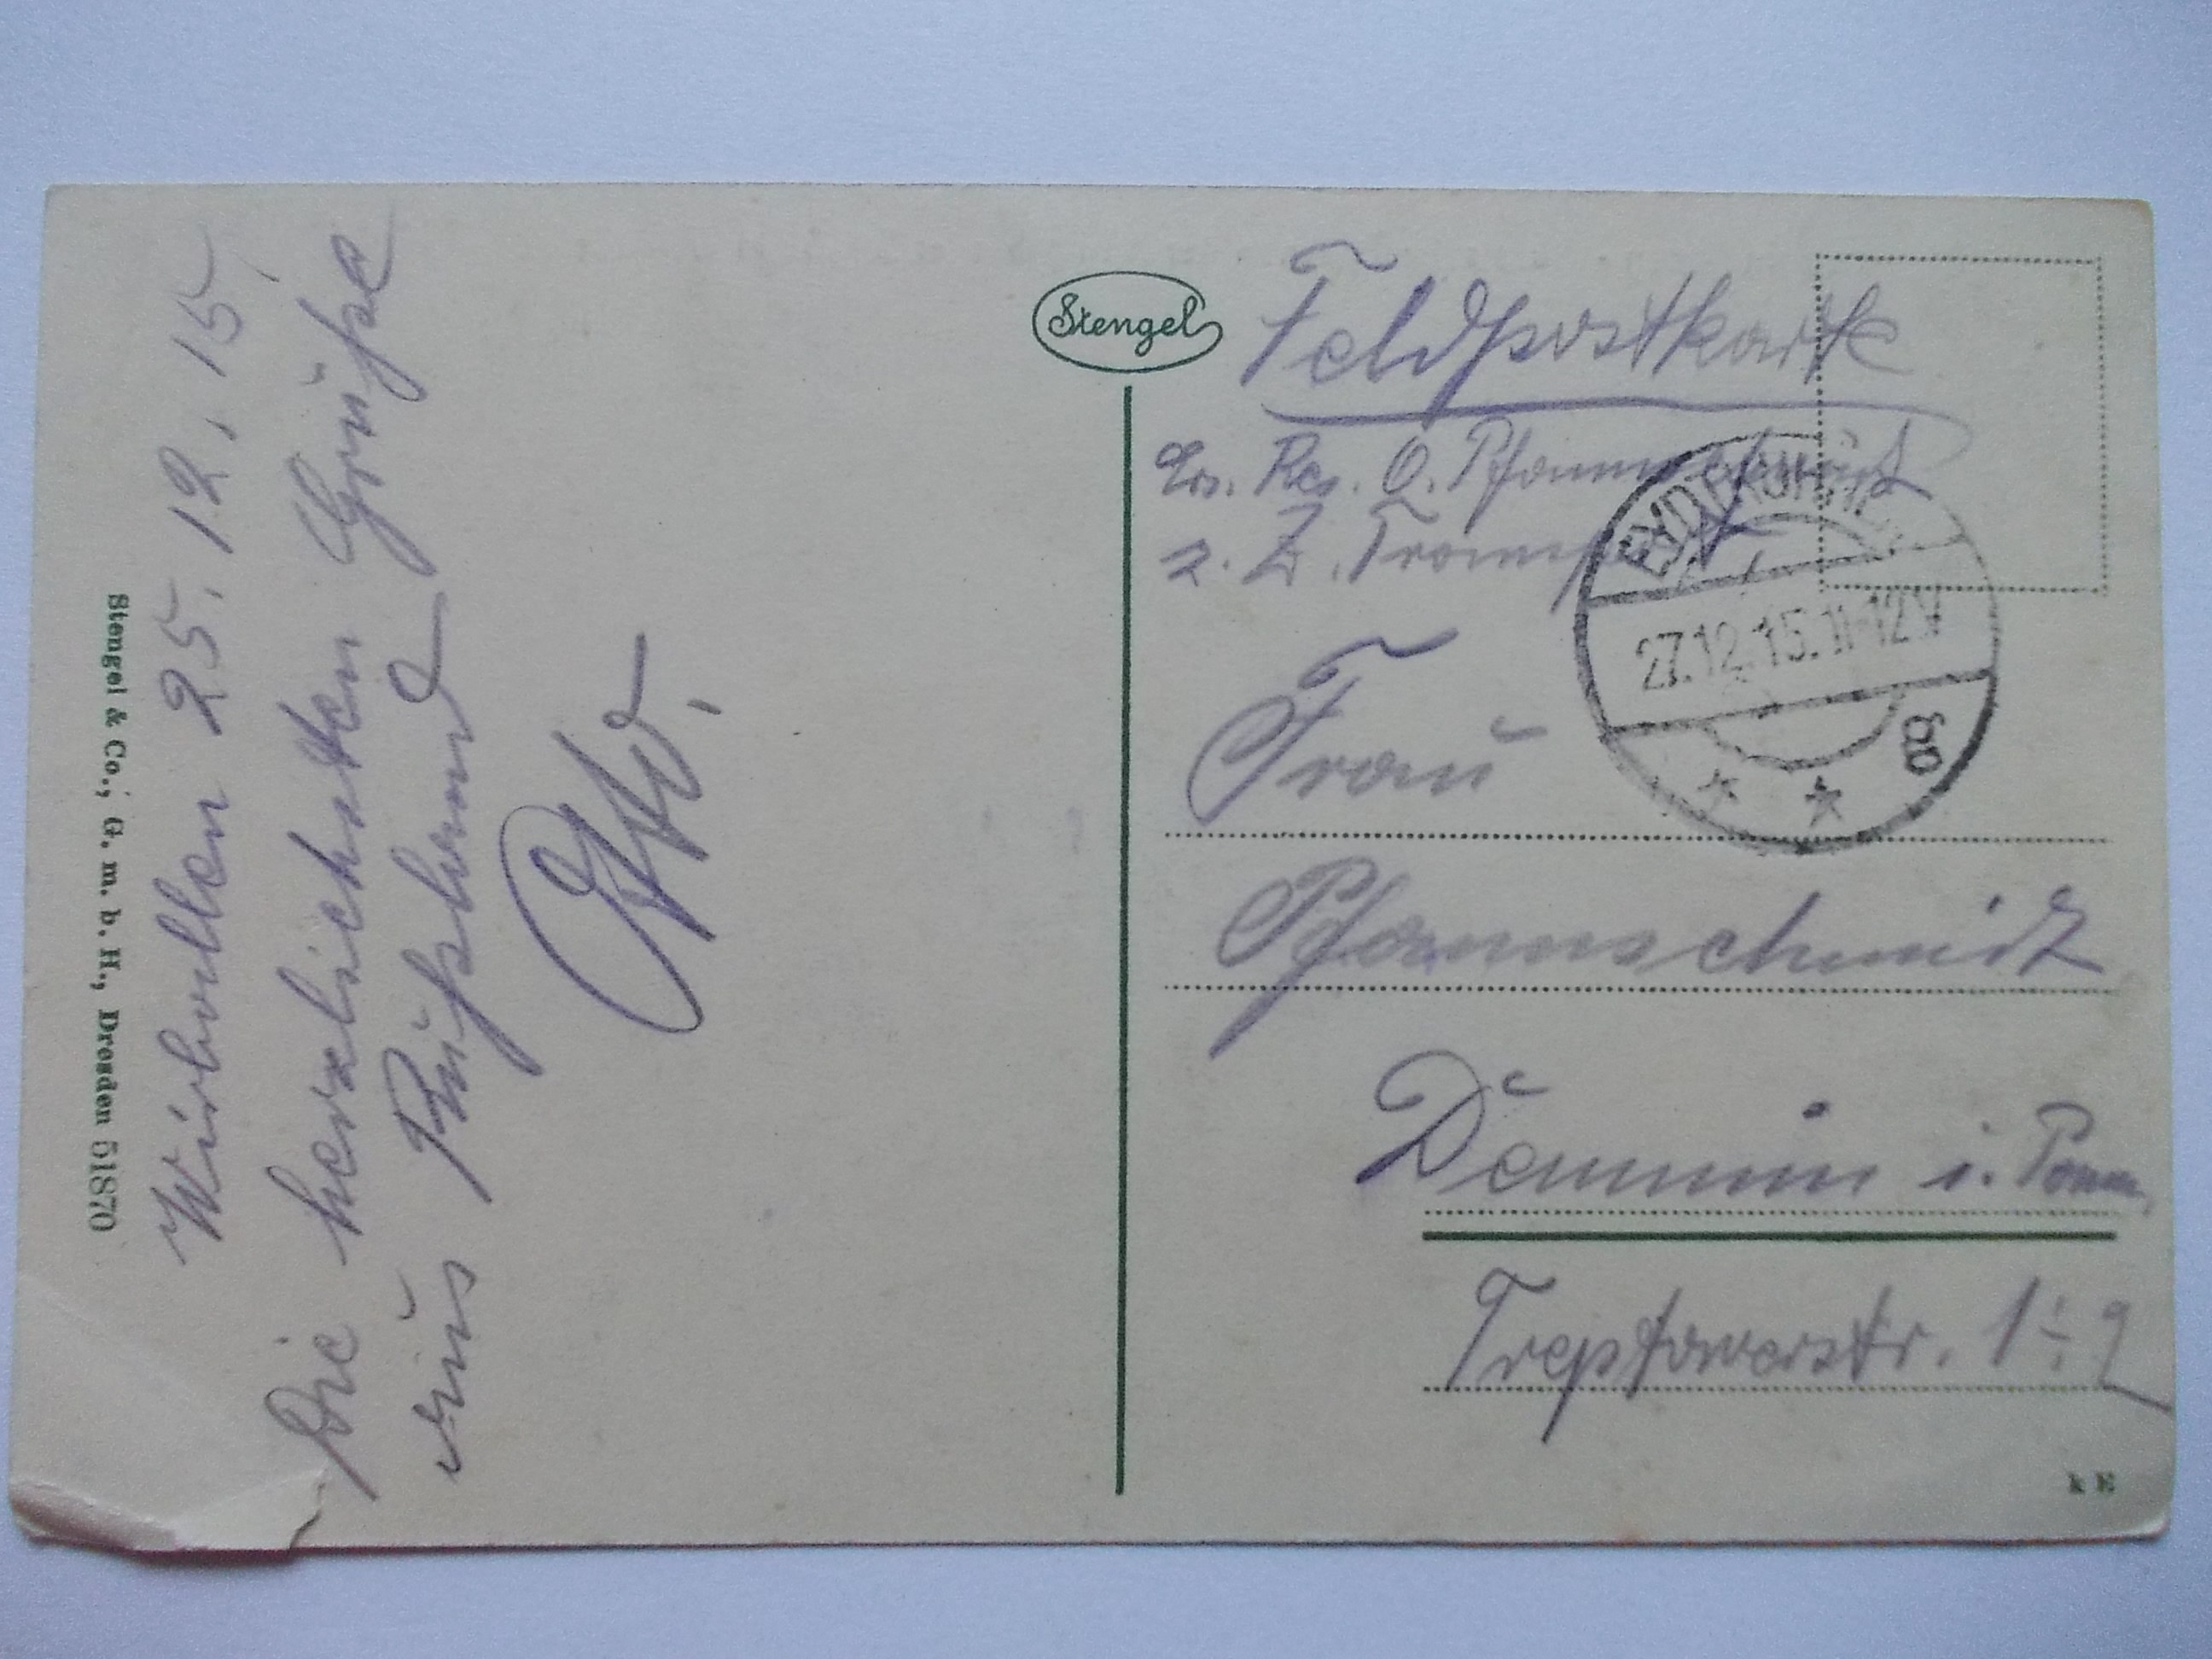 Wirballen 25. 12. 15.
Die herzlichsten Grüße
aus Rußland
Otto.
Stengel & Co., G. m. b. H., Dresden 51870
Stengel
Feldpostkarte
Res. O. Pfannschmidt
z. Z.
EYDTKUHNEN
27.12.15.11-12V
* *
Frau
Pfannschmidt
Demmin i. Pomm.
Treptowerstr.
k E